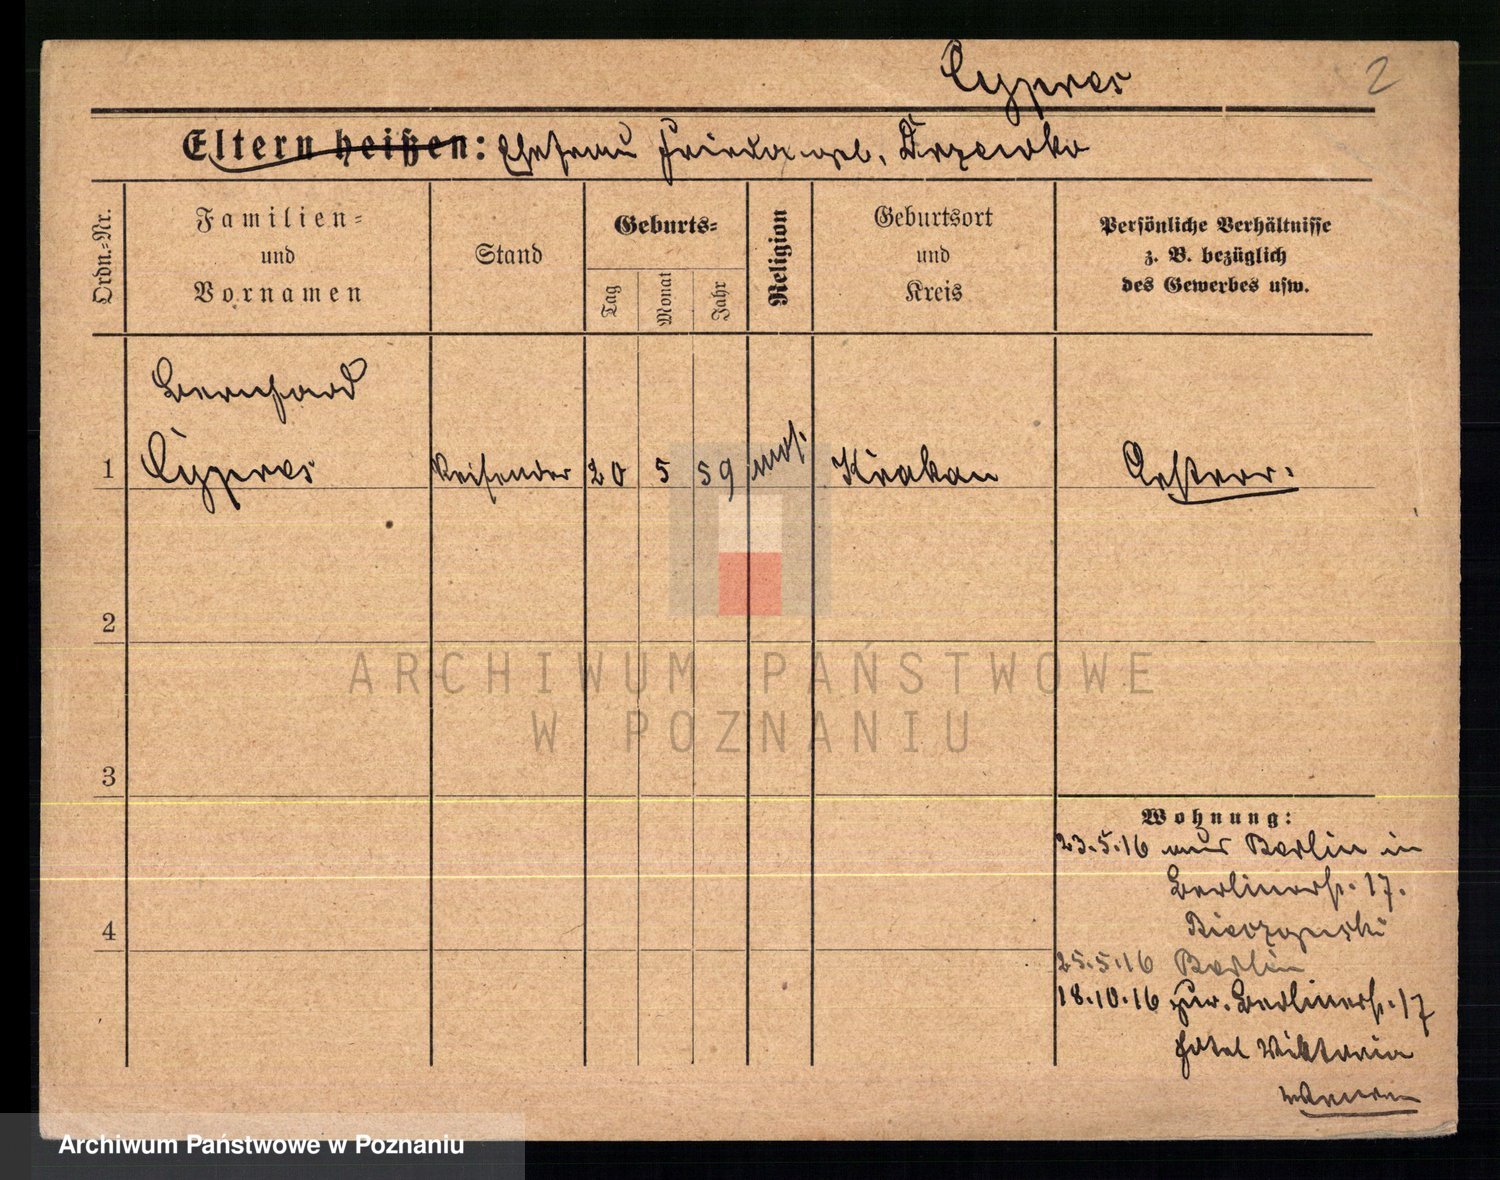 Cypres
2
Eltern heißen: Ehefrau Frieda geb.
Ordn.-Nr.
Familien-
und
Vornamen
Stand
Geburts-
Tag
Monat
Jahr
Religion
Geburtsort
und
Kreis
Persönliche Verhältnisse
z. B. bezüglich
des Gewerbes usw.
Bernhard
1 Cypres Reisender 20 5 59 mos. Krakau Oesterr.
2
ARCHIWUM PAŃSTWOWE
W POZNANIU
3
Wohnung:
23.5.16 aus Berlin in
Berlinerstr. 17.
4
25.5.16 Berlin
18.10.16 zur. Berlinerstr. 17
Hotel Viktoria
Archiwum Państwowe w Poznaniu